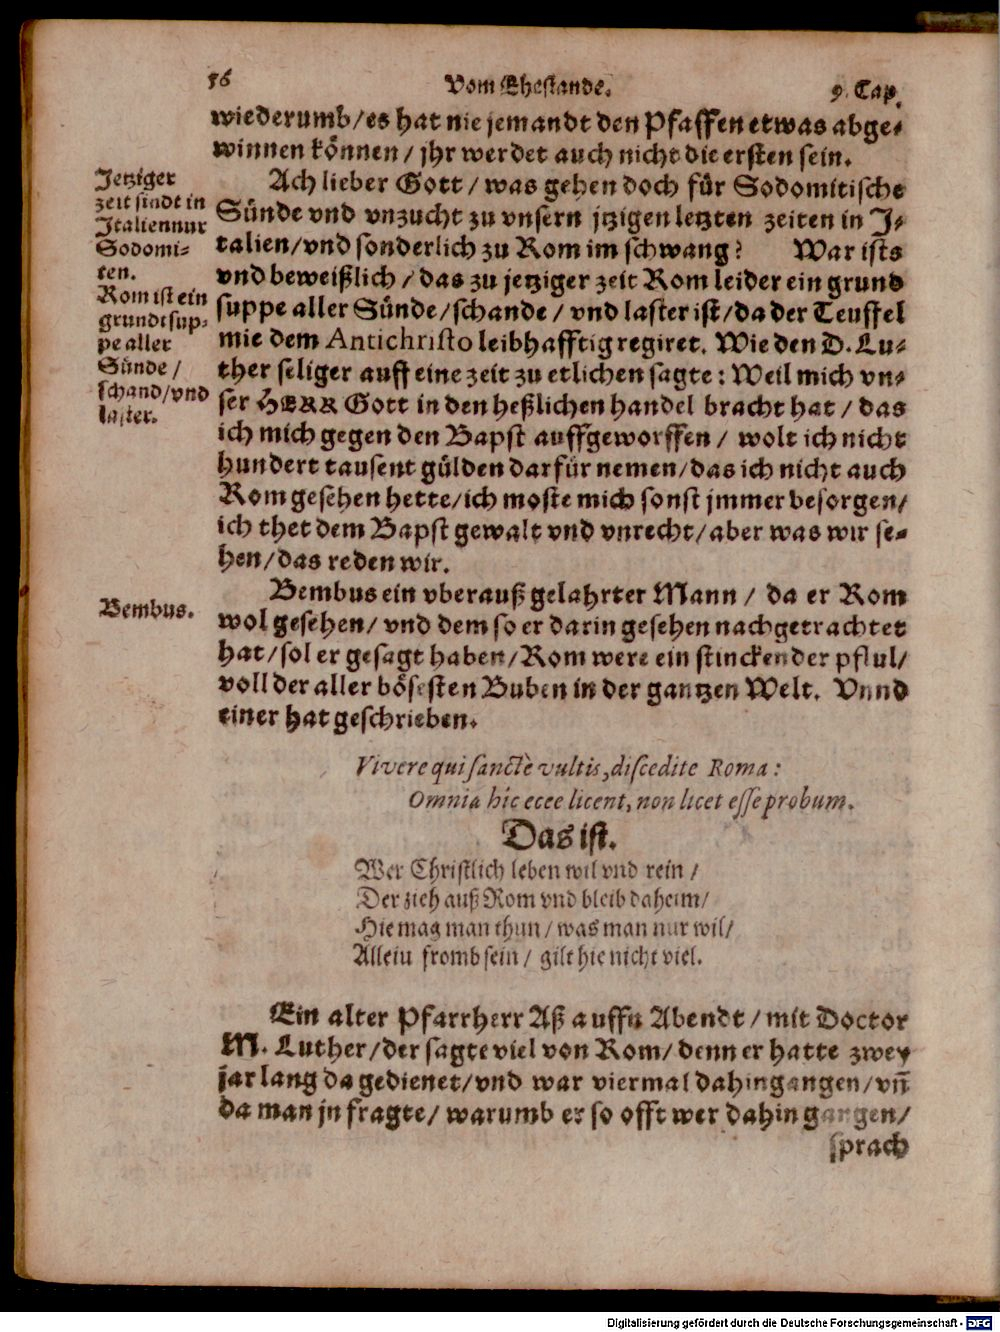 56
Vom Ehestande.
9. Cap.
wiederumb/es hat nie jemandt den Pfaffen etwas abge-
winnen können / jhr werdet auch nicht die ersten sein.
Jetziger
zeit sindt in
Italien nur
Sodomi-
ten.
Rom ist ein
grundtsup-
pe aller
Sünde /
schand/vnd
laster.
Ach lieber Gott / was gehen doch für Sodomitische
Sünde vnd vnzucht zu vnsern jtzigen letzten zeiten in J-
talien/vnd sonderlich zu Rom im schwang? War ists
vnd beweißlich / das zu jetziger zeit Rom leider ein grund
suppe aller Sünde/schande / vnd laster ist/da der Teuffel
mie dem Antichristo leibhafftig regiret. Wie den D. Lu-
ther seliger auff eine zeit zu etlichen sagte: Weil mich vn-
ser HERR Gott in den heßlichen handel bracht hat / das
ich mich gegen den Bapst auffgeworffen / wolt ich nicht
hundert tausent gülden darfür nemen/das ich nicht auch
Rom gesehen hette/ich moste mich sonst jmmer besorgen/
ich thet dem Bapst gewalt vnd vnrecht/aber was wir se-
hen/das reden wir.
Bembus.
Bembus ein vberauß gelahrter Mann / da er Rom
wol gesehen/ vnd dem so er darin gesehen nachgetrachtet
hat/sol er gesagt haben/Rom were ein stinckender pflul/
voll der aller bösesten Buben in der gantzen Welt. Vnnd
einer hat geschrieben.
Vivere qui sanctè vultis, discedite Roma:
Omnia hîc ecce licent, non licet esse probum.
Das ist.
Wer Christlich leben wil vnd rein /
Der zieh auß Rom vnd bleib daheim/
Hie mag man thun / was man nur wil/
Alleiu fromb sein / gilt hie nicht viel.
Ein alter Pfarrherr Aß auffn Abendt / mit Doctor
M. Luther/der sagte viel von Rom/ denn er hatte zwey
jar lang da gedienet/vnd war viermal dahin gangen/vñ
da man jn fragte/ warumb er so offt wer dahin gangen/
sprach
Digitalisierung gefördert durch die Deutsche Forschungsgemeinschaft - DFG